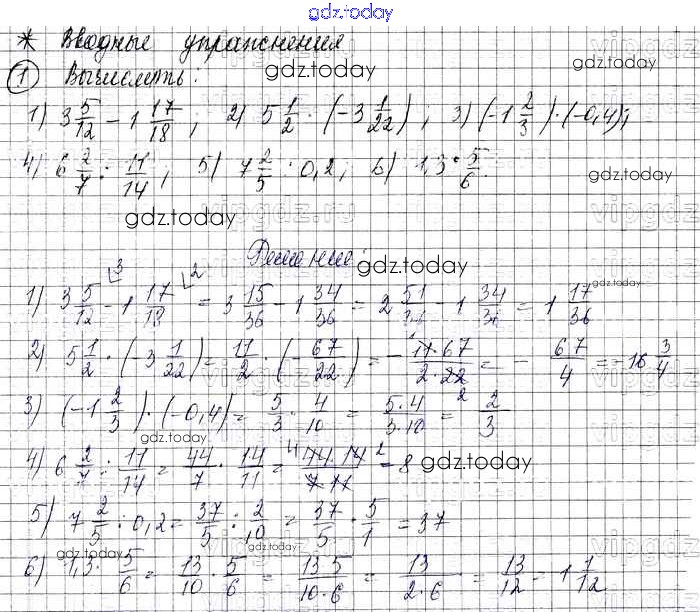 gdz.today
* Вводные упражнения
gdz.today
① Вычислить:
1) 3 5/12 − 1 17/18 ; 2) 5 1/2 · (−3 1/22) ; 3) (−1 2/3) · (−0,4);
4) 6 2/7 : 11/14 ; 5) 7 2/5 : 0,2; 6) 1,3 · 5/6.
gdz.today
gdz.today
vipgdz.ru
Решение:
gdz.today
1) 3 5/12 ⌊3 − 1 17/18 ⌊2 = 3 15/36 − 1 34/36 = 2 51/36 − 1 34/36 = 1 17/36
gdz.today
2) 5 1/2 · (−3 1/22) = 11/2 · (−67/22) = − 11·67/2·22 = − 67/4 = −16 3/4
3) (−1 2/3) · (−0,4) = 5/3 · 4/10 = 5·4/3·10 = 2/3
gdz.today
4) 6 2/7 : 11/14 = 44/7 · 14/11 = 44·14/7·11 = 8
gdz.today
5) 7 2/5 : 0,2 = 37/5 : 2/10 = 37/5 · 5/1 = 37
gdz.today
6) 1,3 · 5/6 = 13/10 · 5/6 = 13·5/10·6 = 13/2·6 = 13/12 = 1 1/12
gdz.today